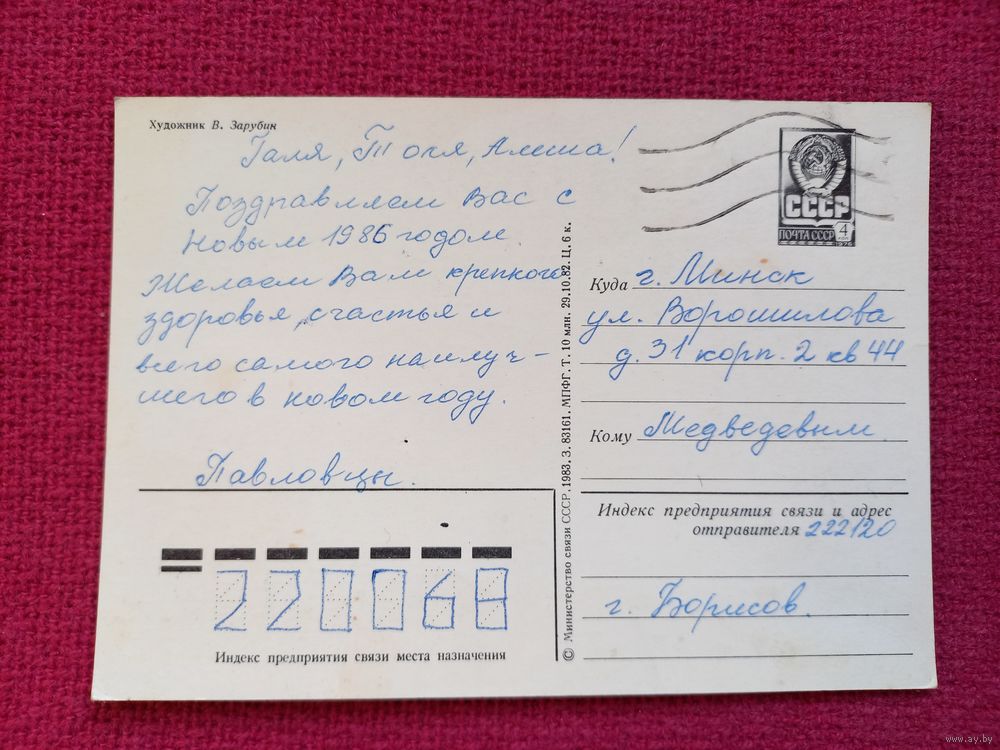 Художник В. Зарубин
Галя, Толя, Алеша!
Поздравляем Вас с
Новым 1986 годом
Желаем Вам крепкого
здоровья, счастья и
всего самого наилуч-
шего в новом году.
Павловцы.
220068
Индекс предприятия связи места назначения
© Министерство связи СССР. 1983. З. 83161. МПФГ. Т. 10 млн. 29.10.82. Ц. 6 к.
СССР
ПОЧТА СССР 4
1976
Куда г. Минск
ул. Ворошилова
д. 31 корп. 2 кв 44
Кому Медведевым
Индекс предприятия связи и адрес
отправителя 222120
г. Борисов.
www.ay.by